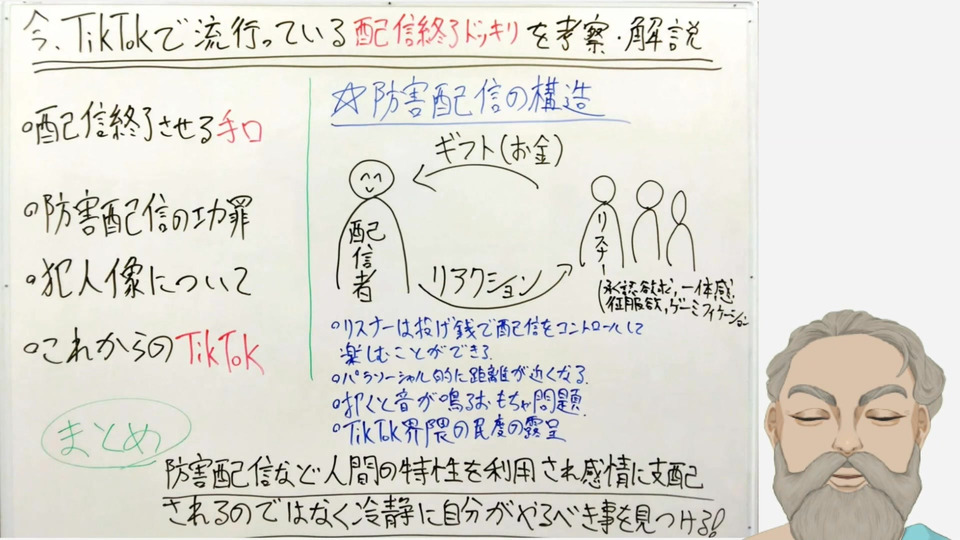 今、TikTokで流行っている配信終了ドッキリを考察・解説
○配信終了させる手口
○防害配信の功罪
○犯人像について
○これからのTikTok
☆防害配信の構造
ギフト(お金)
配信者
リスナー
リアクション
(承認欲求,一体感,
征服欲,ゲーミフィケーション
○リスナーは投げ銭で配信をコントロールして
楽しむことができる.
○パラソーシャル的に距離が近くなる.
○叩くと音が鳴るおもちゃ問題.
○TikTok界隈の民度の露呈
まとめ
防害配信など人間の特性を利用され感情に支配
されるのではなく冷静に自分がやるべき事を見つける!